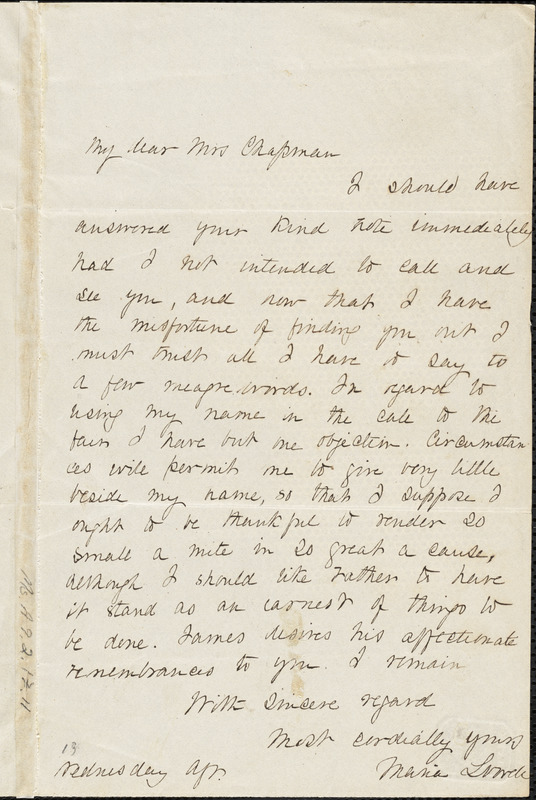 My dear Mrs Chapman
I should have
answered your kind note immediately
had I not intended to call and
see you, and now that I have
the misfortune of finding you out I
must trust all I have to say to
a few meagre words. In regard to
using my name in the call to the
fair I have but one objection. Circumstan
ces will permit me to give very little
beside my name, so that I suppose I
ought to be thankful to render so
small a mite in so great a cause,
although I should like rather to have
it stand as an earnest of things to
be done. James desires his affectionate
remembrances to you. I remain
With sincere regard
Most cordially yours
Maria Lowell
Wednesday Apr.
13